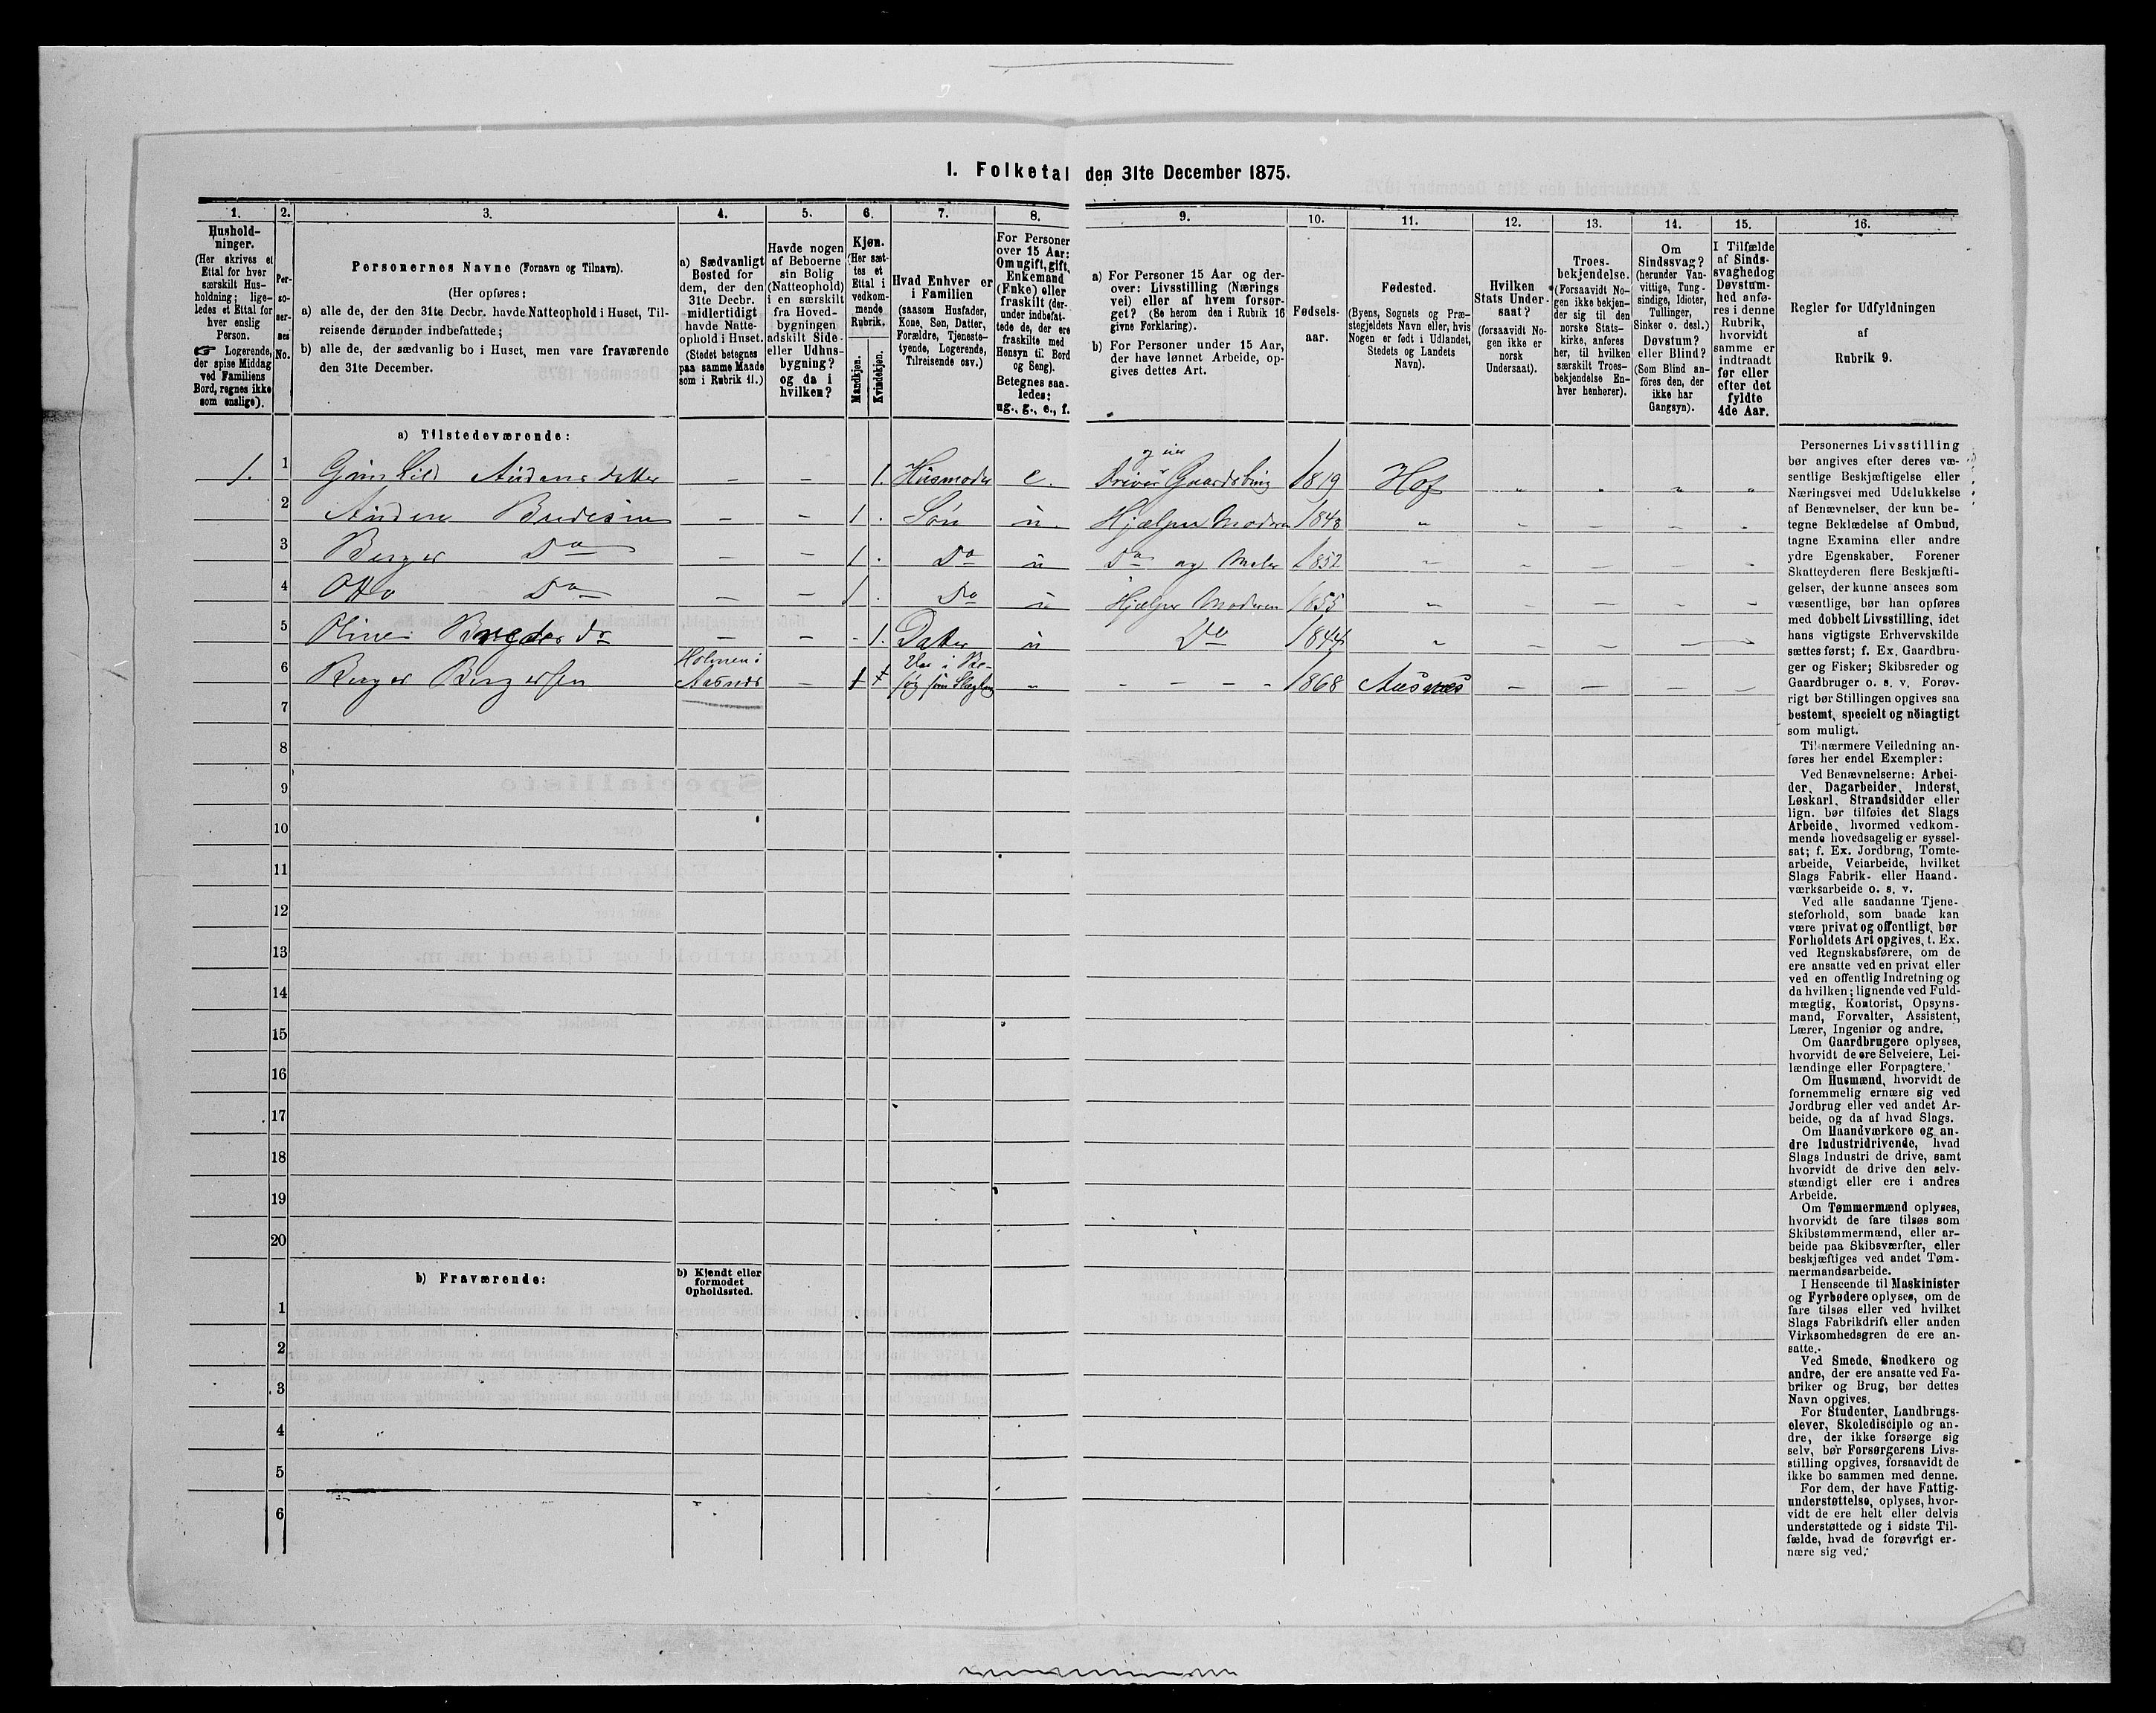 1. Folketal den 31te December 1875.
1. 2. 3. 4. 5. 6. 7. 8. 9. 10. 11. 12. 13. 14. 15. 16.
Hushold-
ninger.
(Her skrives et
Ettal for hver
særskilt Hus-
holdning; lige-
ledes et Ettal for
hver enslig
Person.
☞ Logerende,
der spise Middag
ved Familiens
Bord, regnes ikke
som enslige).
Per-
so-
ner-
nes
No.
Personernes Navne (Fornavn og Tilnavn).
(Her opføres:
a) alle de, der den 31te Decbr. havde Natteophold i Huset, Til-
reisende derunder indbefattede;
b) alle de, der sædvanlig bo i Huset, men vare fraværende
den 31te December.
a) Sædvanligt
Bosted for
dem, der den
31te Decbr.
midlertidigt
havde Natte-
ophold i Huset.
(Stedet betegnes
paa samme Maade
som i Rubrik 11.)
Havde nogen
af Beboerne
sin Bolig
(Natteophold)
i en særskilt
fra Hoved-
bygningen
adskilt Side-
eller Udhus-
bygning?
og da i
hvilken?
Kjøn.
(Her sæt-
tes et
Ettal i
vedkom-
mende
Rubrik.
Mandkjøn.
Kvindekjøn.
Hvad Enhver er
i Familien
(saasom Husfader,
Kone, Søn, Datter,
Forældre, Tjeneste-
tyende, Logerende,
Tilreisende osv.)
For Personer
over 15 Aar:
Om ugift, gift,
Enkemand
(Enke) eller
fraskilt (der-
under indbefat-
tede de, der ere
fraskilte med
Hensyn til Bord
og Seng).
Betegnes saa-
ledes:
ug., g., e., f.
a) For Personer 15 Aar og der-
over: Livsstilling (Nærings
vei) eller af hvem forsør-
get? (Se herom den i Rubrik 16
givne Forklaring).
b) For Personer under 15 Aar,
der have lønnet Arbeide, op-
gives dettes Art.
Fødsels-
aar.
Fødested.
(Byens, Sognets og Præ-
stegjeldets Navn eller, hvis
Nogen er født i Udlandet,
Stedets og Landets
Navn).
Hvilken
Stats Under-
saat?
(forsaavidt No-
gen ikke er
norsk
Undersaat).
Troes-
bekjendelse.
(Forsaavidt No-
gen ikke bekjen-
der sig til den
norske Stats-
kirke, anføres
her, til hvilken
særskilt Troes-
bekjendelse En-
hver henhører).
Om
Sindssvag?
(herunder Van-
vittige, Tung-
sindige, Idioter,
Tullinger,
Sinker o. desl.)
Døvstum?
eller Blind?
(Som Blind an-
føres den, der
ikke har
Gangsyn).
I Tilfælde
af Sinds-
svaghed og
Døvstum-
hed anfø-
res i denne
Rubrik,
hvorvidt
samme er
indtraadt
før eller
efter det
fyldte
4de Aar.
Regler for Udfyldningen
af
Rubrik 9.
a) Tilstedeværende:
1. 1 Gunhild Audensdatter – – 1. Husmoder e. og eier Driver Gaardsbrug 1819 Hof
2 Auden Bredesen – – 1 . Søn u. Hjælper Moderen 1848 "
3 Berger Do – – 1 . Do u Do og Maler 1852 "
4 Otto Do – – 1 . Do u Hjælper Moderen 1855 "
5 Oline Bredesdr – – - 1. Datter u Do 1844 "
6 Berger Bergersen Holmen i Aasnes – 1 Var i Be-
søg som Slægtning – – – – – 1868 Aasnes – – – –
7
8
9
10
11
12
13
14
15
16
17
18
19
20
b) Fraværende:
b) Kjendt eller
formodet
Opholdssted.
1
2
3
4
5
6
Personernes Livsstilling
bør angives efter deres væ-
sentlige Beskjæftigelse eller
Næringsvei med Udelukkelse
af Benævnelser, der kun be-
tegne Beklædelse af Ombud,
tagne Examina eller andre
ydre Egenskaber. Forener
Skatteyderen flere Beskjæfti-
gelser, der kunne ansees som
væsentlige, bør han opføres
med dobbelt Livsstilling, idet
hans vigtigste Erhvervskilde
sættes først; f. Ex. Gaardbru-
ger og Fisker; Skibsreder og
Gaardbruger o. s. v. Forøv-
rigt bør Stillingen opgives saa
bestemt, specielt og nöiagtigt
som muligt.
Til nærmere Veiledning an-
føres her endel Exempler:
Ved Benævnelserne: Arbei-
der, Dagarbeider, Inderst,
Løskarl, Strandsidder eller
lign. bør tilføies det Slags
Arbeide, hvormed vedkom-
mende hovedsagelig er syssel-
sat; f. Ex. Jordbrug, Tomte-
arbeide, Veiarbeide, hvilket
Slags Fabrik- eller Haand-
værksarbeide o. s. v.
Ved alle saadanne Tjene-
steforhold, som baade kan
være privat og offentligt, bør
Forholdets Art opgives, t. Ex.
ved Regnskabsførere, om de
ere ansatte ved en privat eller
ved en offentlig Indretning og
da hvilken; lignende ved Fuld-
mægtig, Kontorist, Opsyns-
mand, Forvalter, Assistent,
Lærer, Ingeniør og andre.
Om Gaardbrugere oplyses,
hvorvidt de ere Selveiere, Lei-
lændinge eller Forpagtere.
Om Husmænd, hvorvidt de
fornemmelig ernære sig ved
Jordbrug eller ved andet Ar-
beide, og da af hvad Slags.
Om Haandværkere og an-
dre Industridrivende, hvad
Slags Industri de drive, samt
hvorvidt de drive den selv-
stændigt eller ere i andres
Arbeide.
Om Tømmermænd oplyses,
hvorvidt de fare tilsøs som
Skibstømmermænd, eller ar-
beide paa Skibsværfter, eller
beskjæftiges ved andet Tøm-
mermandsarbeide.
I Henseende til Maskinister
og Fyrbødere oplyses, om de
fare tilsøs eller ved hvilket
Slags Fabrikdrift eller anden
Virksomhedsgren de ere an-
satte.
Ved Smede, Snedkere og
andre, der ere ansatte ved Fa-
briker og Brug, bør dettes
Navn opgives.
For Studenter, Landbrugs-
elever, Skoledisciple og an-
dre, der ikke forsørge sig
selv, bør Forsørgerens Livs-
stilling opgives, forsaavidt de
ikke bo sammen med denne.
For dem, der have Fattig-
understøttelse, oplyses, hvor-
vidt de ere helt eller delvis
understøttede og i sidste Til-
fælde, hvad de forøvrigt er-
nære sig ved.